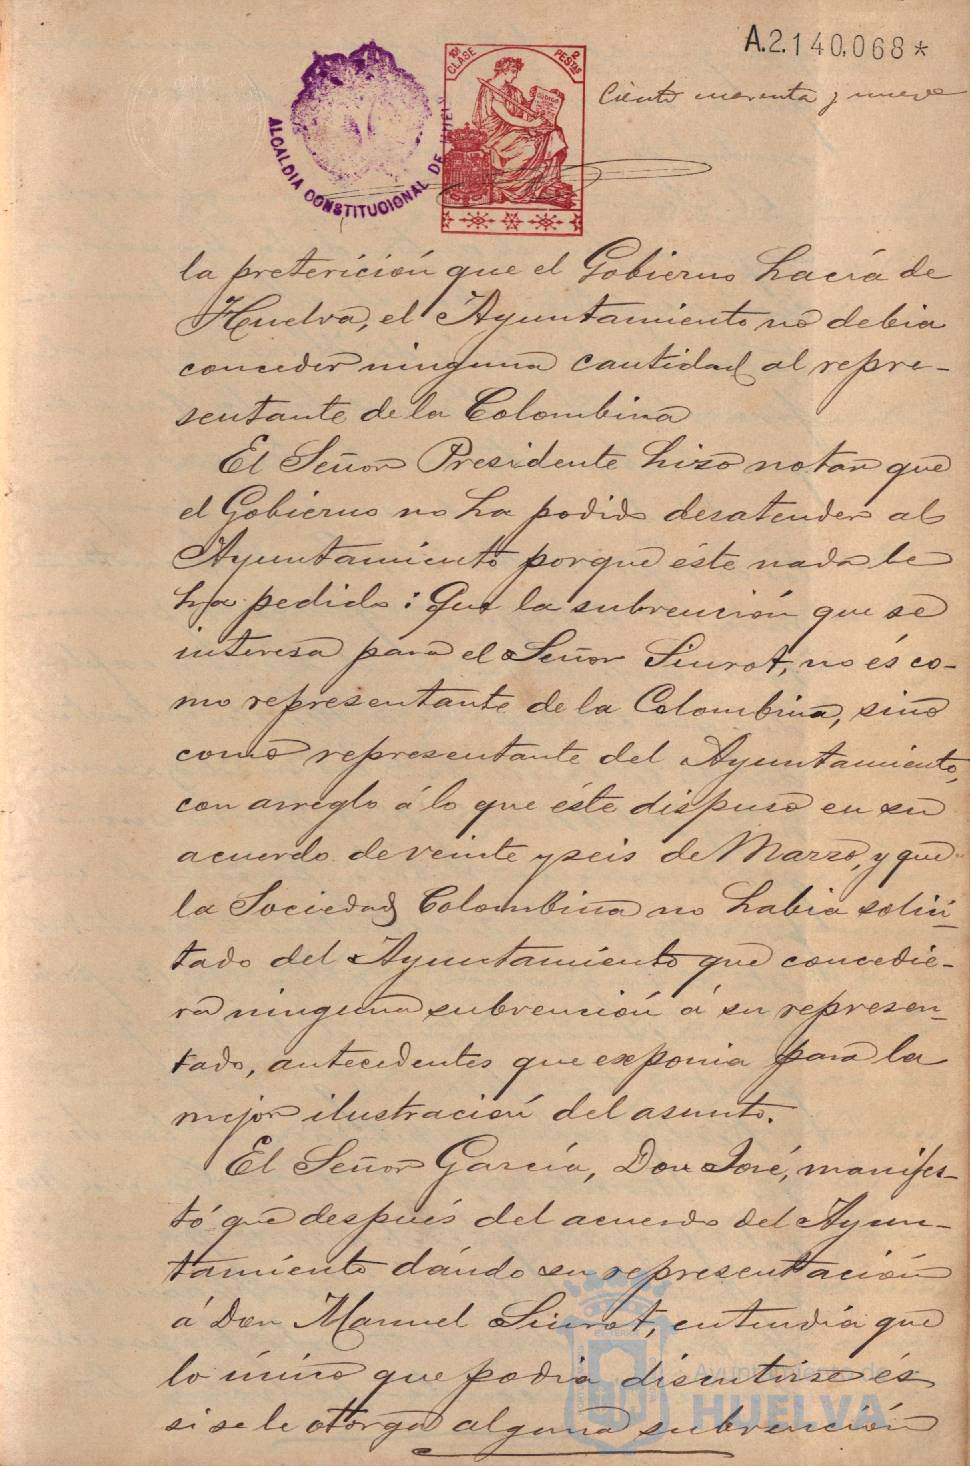 A.2.140,068*
10ª CLASE
2 PESTAS
Ciento cuarenta y nueve
ALCALDIA CONSTITUCIONAL DE HUELVA
la preterición que el Gobierno hacía de
Huelva, el Ayuntamiento no debia
conceder ninguna cantidad al repre-
sentante de la Colombina
El Señor Presidente hizo notar que
el Gobierno no ha podido desatender al
Ayuntamiento porque éste nada le
ha pedido: Que la subvención que se
interesa para el Señor Siurot, no és co-
mo representante de la Colombina, sino
como representante del Ayuntamiento,
con arreglo á lo que éste dispuso en su
acuerdo de veinte y seis de Marzo, y que
la Sociedad Colombina no habia solici-
tado del Ayuntamiento que concedie-
ra ninguna subvención á su represen-
tado, antecedentes que exponia para la
mejor ilustración del asunto.
El Señor García, Don José, manifes-
tó que después del acuerdo del Ayun-
tamiento dándo su representación
á Don Manuel Siurot, entendía que
lo único que podia discutirse és
si se le otorga alguna subvención
Ayuntamiento de
HUELVA